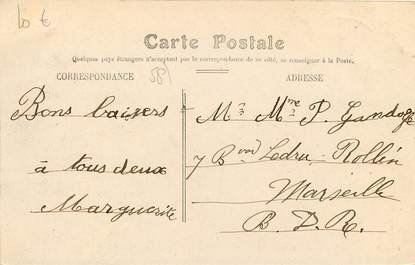 10 €
Carte Postale
Quelques pays étrangers n'acceptent pas la correspondance de ce côté, se renseigner à la Poste.
CORRESPONDANCE
58
ADRESSE
Bons baisers
à tous deux
Marguerite
Mr Mme P.
7 Bvard Ledru-Rollin
Marseille
B. D. R.